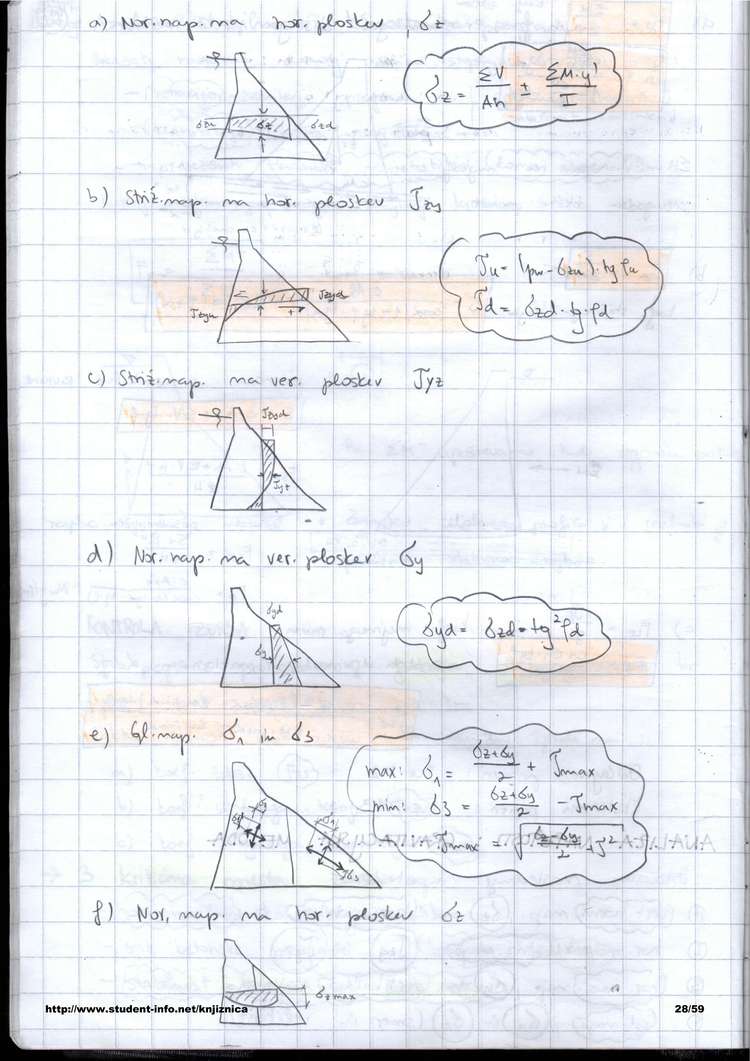 a) Nor. nap. na hor. ploskev, σz
σz = ΣV/Ah ± ΣM·y'/I
σzu σz σzd
b) Striž. nap. na hor. ploskev τzy
τu = (pw - σzu)·tg φu
τd = σzd·tg·φd
τzyu τzyd
c) Striž. nap. na ver. ploskev τyz
τzyd
τyz
d) Nor. nap. na ver. ploskev σy
σyd
σyd = σzd·tg²φd
e) Gl. nap. σ1 in σ3
max: σ1 = σz+σy/2 + τmax
min: σ3 = σz+σy/2 - τmax
τmax = √σz-σy/2 + τ²
σ3
f) Nor. nap. na hor. ploskev σz
σz max
http://www.student-info.net/knjiznica
28/59